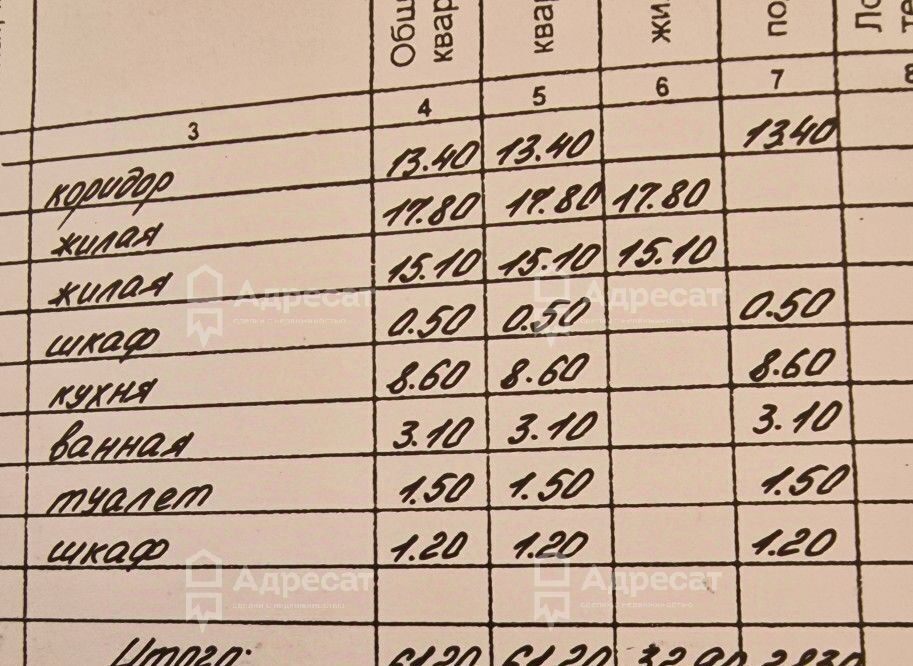 Общ квар квар жи по Ло те
3 4 5 6 7 8
коридор 13.40 13.40 13.40
жилая 17.80 17.80 17.80
жилая 15.10 15.10 15.10
шкаф 0.50 0.50 0.50
кухня 8.60 8.60 8.60
ванная 3.10 3.10 3.10
туалет 1.50 1.50 1.50
шкаф 1.20 1.20 1.20
Итого: 61.20 61.20 32.90 28.30
Адресат Адресат
Адресат Адресат